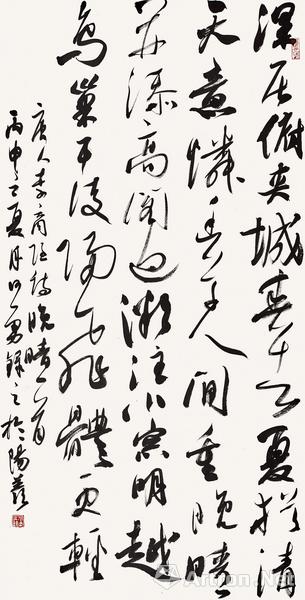 深居俯夾城春去夏猶清
天意憐幽草人間重晚晴
并添高閣迥微注小窗明越
鳥巢干後歸飛體更輕
唐人李商隱詩晚晴一首
丙申之夏月勇錄之於陽羨
Artron.Net